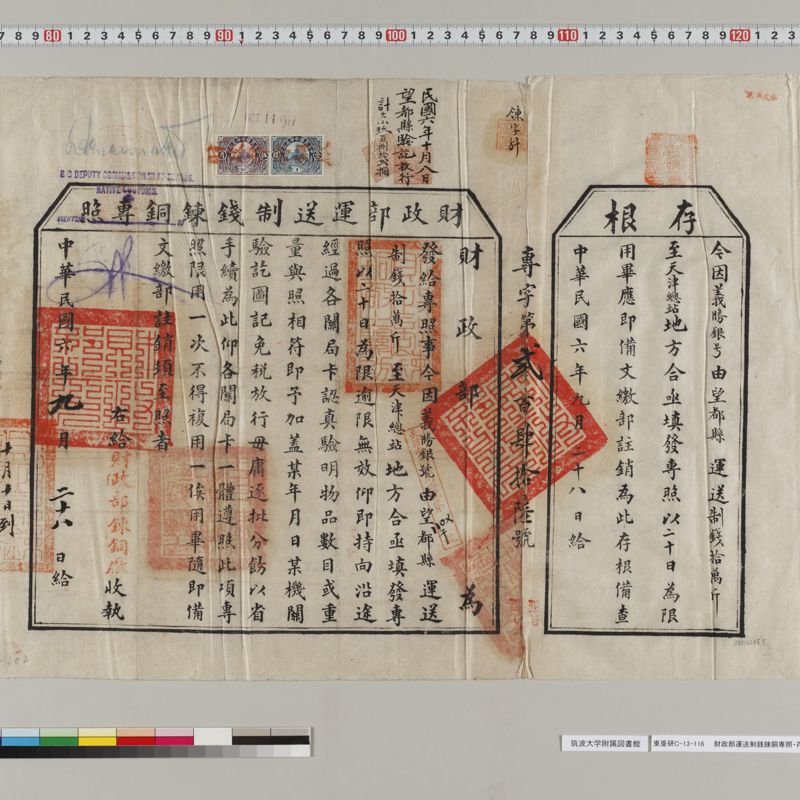 存根
令因義勝銀号由望都縣運送制錢拾萬斤
至天津總站地方合亟填發專照以二十日為限
用畢應即備文繳部註銷為此存根備查
中華民國六年九月二十八日給
專字第貳百肆拾陸號
鍊字針
民國六年十月八日
望都縣驗訖放行
財政部運送制錢鍊銅專照
財政部為
發給專照事今因義勝銀號由望都縣運送
制錢拾萬斤至天津總站地方合亟填發專
照以二十日為限逾限無放仰即持向沿途
經過各關局卡認真驗明物品數目或重
量與照相符即予加蓋某年月日某機關
驗訖圖記免稅放行毋庸逐批分飭以省
手續為此仰各關局卡一體遵照此項專
照限用一次不得複用一俟用畢隨即備
文繳部註銷須至照者
右給財政部鍊銅廠收執
中華民國六年九月二十八日給
十月十日到
NATIVE CUSTOMS.
80 90 100 110 120
筑波大学附属図書館
東亜研C-13-116 財政部運送制錢鍊銅専照・存